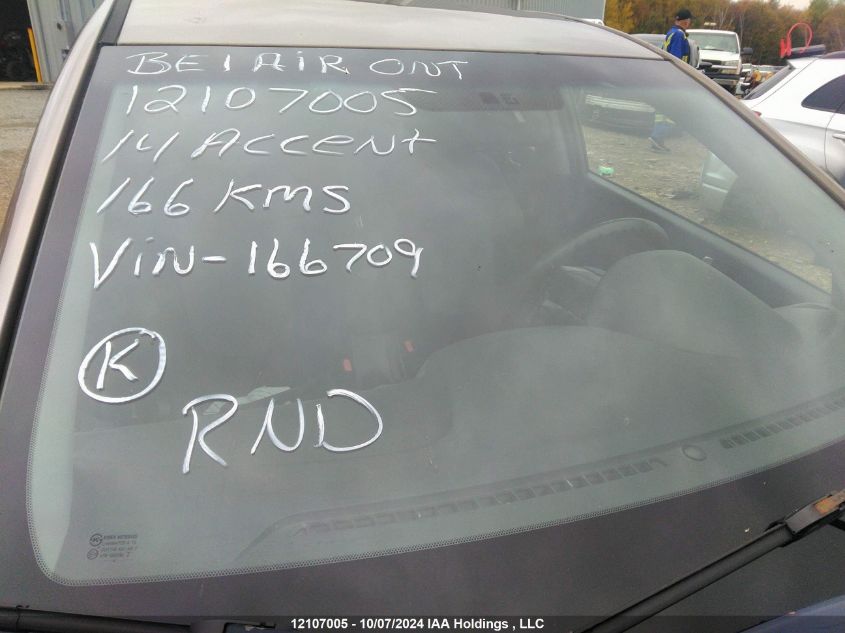 BELAIR ONT
12107005
14 ACCENT
166 KMS
VIN-166709
K
RND
12107005 - 10/07/2024 IAA Holdings , LLC